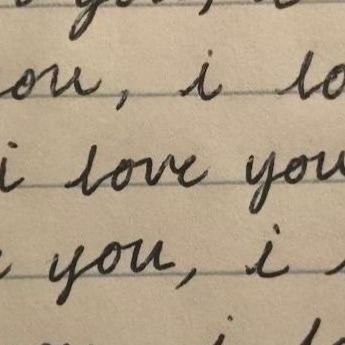 you,
ou, i lo
i love you
you, i
i lo